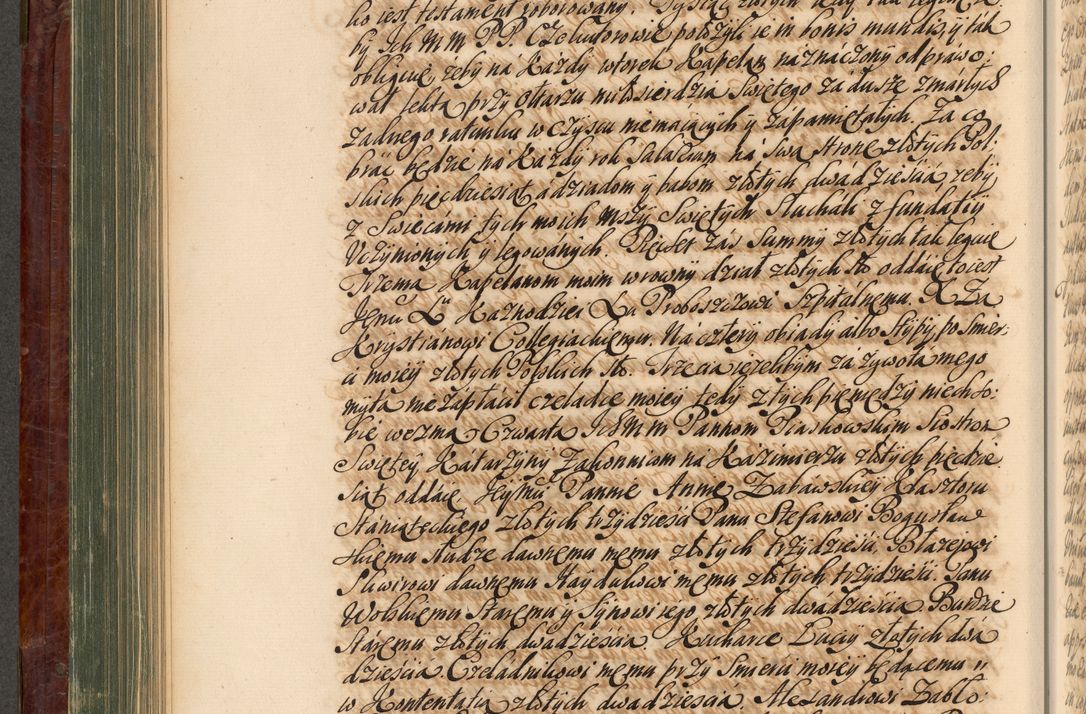 ko iest testament roborowany. Tysiąc złotych
by Ich MM PP. Exekutorowie położyli ie in bonis mundis, y tak
obliguię żeby na Każdy wtorek Kapelan naznaczony odprawo:
wał lekta przy Ołtarzu miłosierdzia Swiętego za dusze zmarłych
zadnego ratunku w czyscu niemaiących y zápamiętałych. Za co
brać będzie na Każdy rok Salarium ná swą stronę złotych Pol:
skich pięcdziesiąt, a dziadom y babom złotych dwadziescia, zeby
z Swiecámi tych moich Mszy Swiętych Słucháli z fundátiy
Vczynionych y legowanych. Pięćset záś Summy złotych tak leguię
Trzema Kapelanom moim w rowny dział złotych sto oddáię to iest
Jemu X Kaznodziei Xa Proboszczowi Szpitalnemu. X Za
Krystianowi Collegiackiemu. Na cztery obiady albo stypy, po śmier:
ci moiey złotych Polskich sto. Trzecia ieżelibym zá zywotá mego
myta nie zapłácił czeladce moiey tedy z tych pieniędzy niech só:
bie wezmą. Czwarta Ich MM Pannom Piaskowskim Siostrom
Swiętey Katarzyny Zakonnicom na Kazimierzu złotych pięćdzie
siąt oddáię. Jeymci Pannie Annie Zabawskiey Klasztoru
Staniąteckiego złotych trzydzieści Panu Stefanowi Bogusław
skiemu słudze dawnemu memu złotych trzydzieści, Błazejowi
Suwirowi dawnemu Haydukowi memu złotych trzydzieści. Panu
Wolskiemu Staremu y Synowi iego złotych dwádziescia. Burdzie
Staremu złotych dwadziescia Kucharce Łuciy złotych dwá
dziescia. Czeladnikowi memu przy smierci moiey będącemu y
w Kontentatią złotych dwadziescia Alexandrowi Zabło: